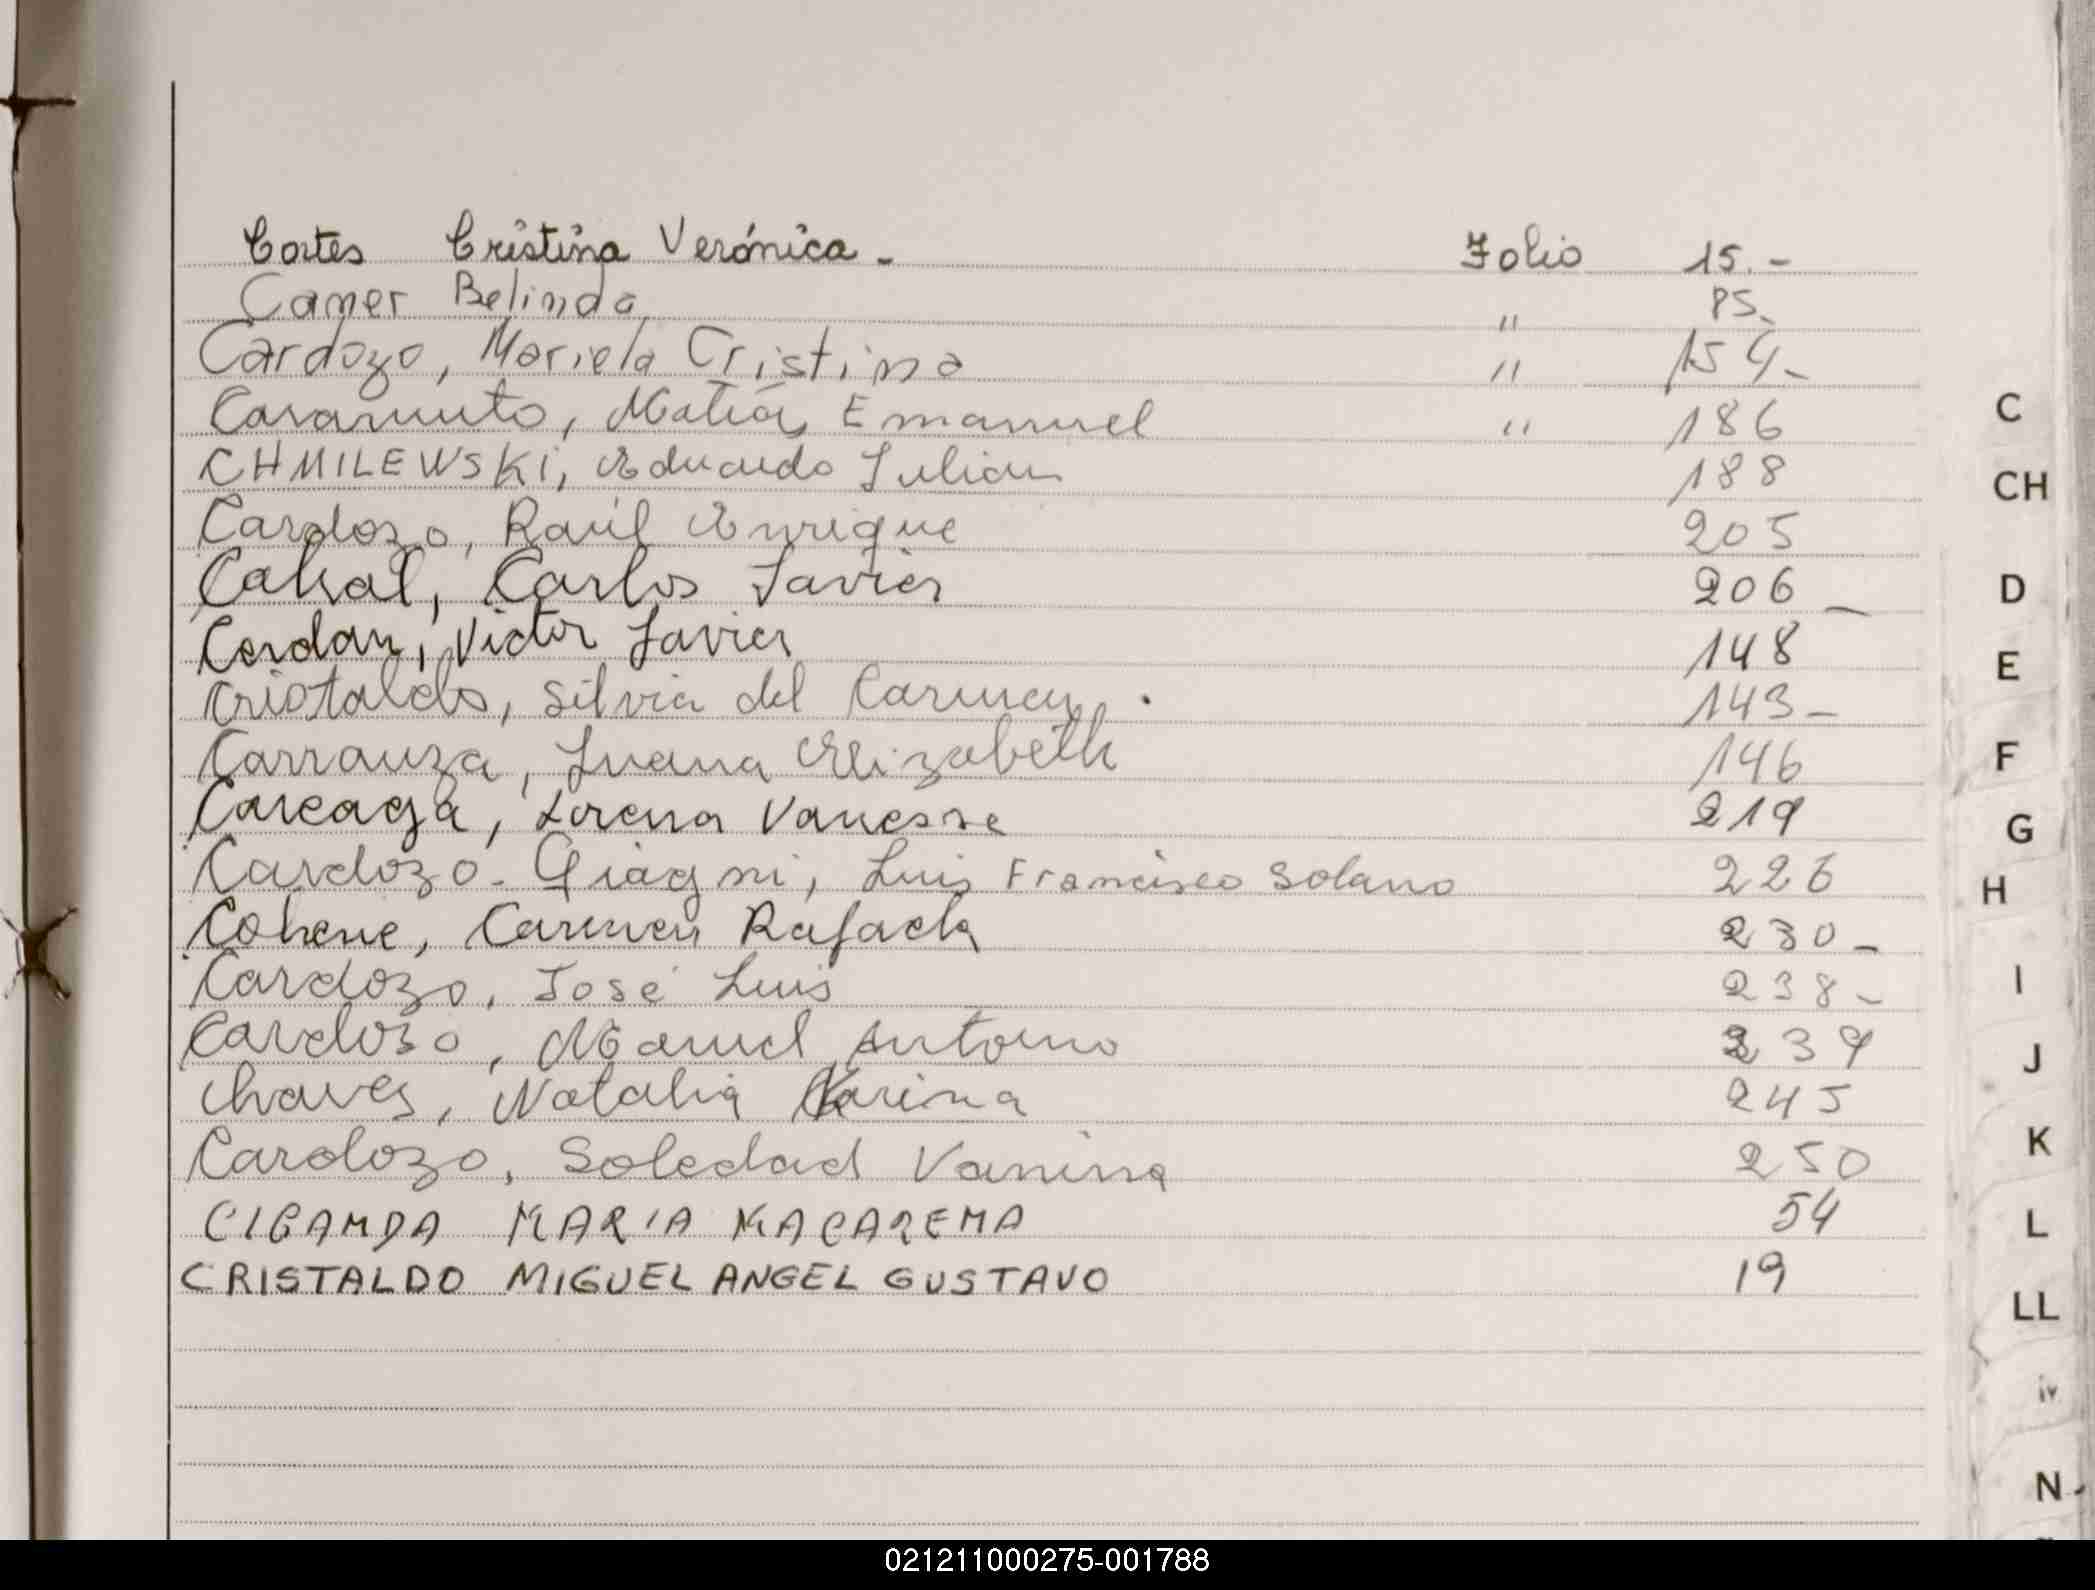 Cortes Cristina Verónica.- Folio 15.-
Caner Belinda " 85.
Cardozo, Mariela Cristina " 154.-
Caramuto, Matías Emanuel " 186
CHMILEWSKI, Eduardo Julian 188
Cardozo, Raúl Enrique 205
Cabral, Carlos Javier 206 -
Cerdan, Victor Javier 148
Cristaldo, Silvia del Carmen. 143 -
Carranza, Juana Elizabeth 146
Careaga, Lorena Vanessa 219
Cardozo-Giagni, Luis Francisco Solano 226
Cohene, Carmen Rafaela 230 -
Cardozo, José Luis 238 -
Cardozo, Manuel Antonio 239
Chaves, Natalia Karina 245
Cardozo, Soledad Vanina 250
CIGANDA MARIA MACARENA 54
CRISTALDO MIGUEL ANGEL GUSTAVO 19
C
CH
D
E
F
G
H
I
J
K
L
LL
N
021211000275-001788